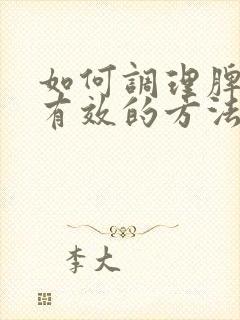 如何調理脾
有效的方法
李大